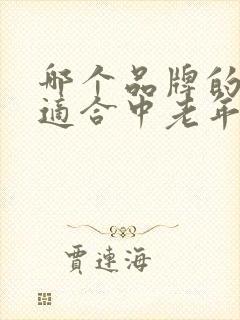 哪个品牌的
适合中老年
贾连海